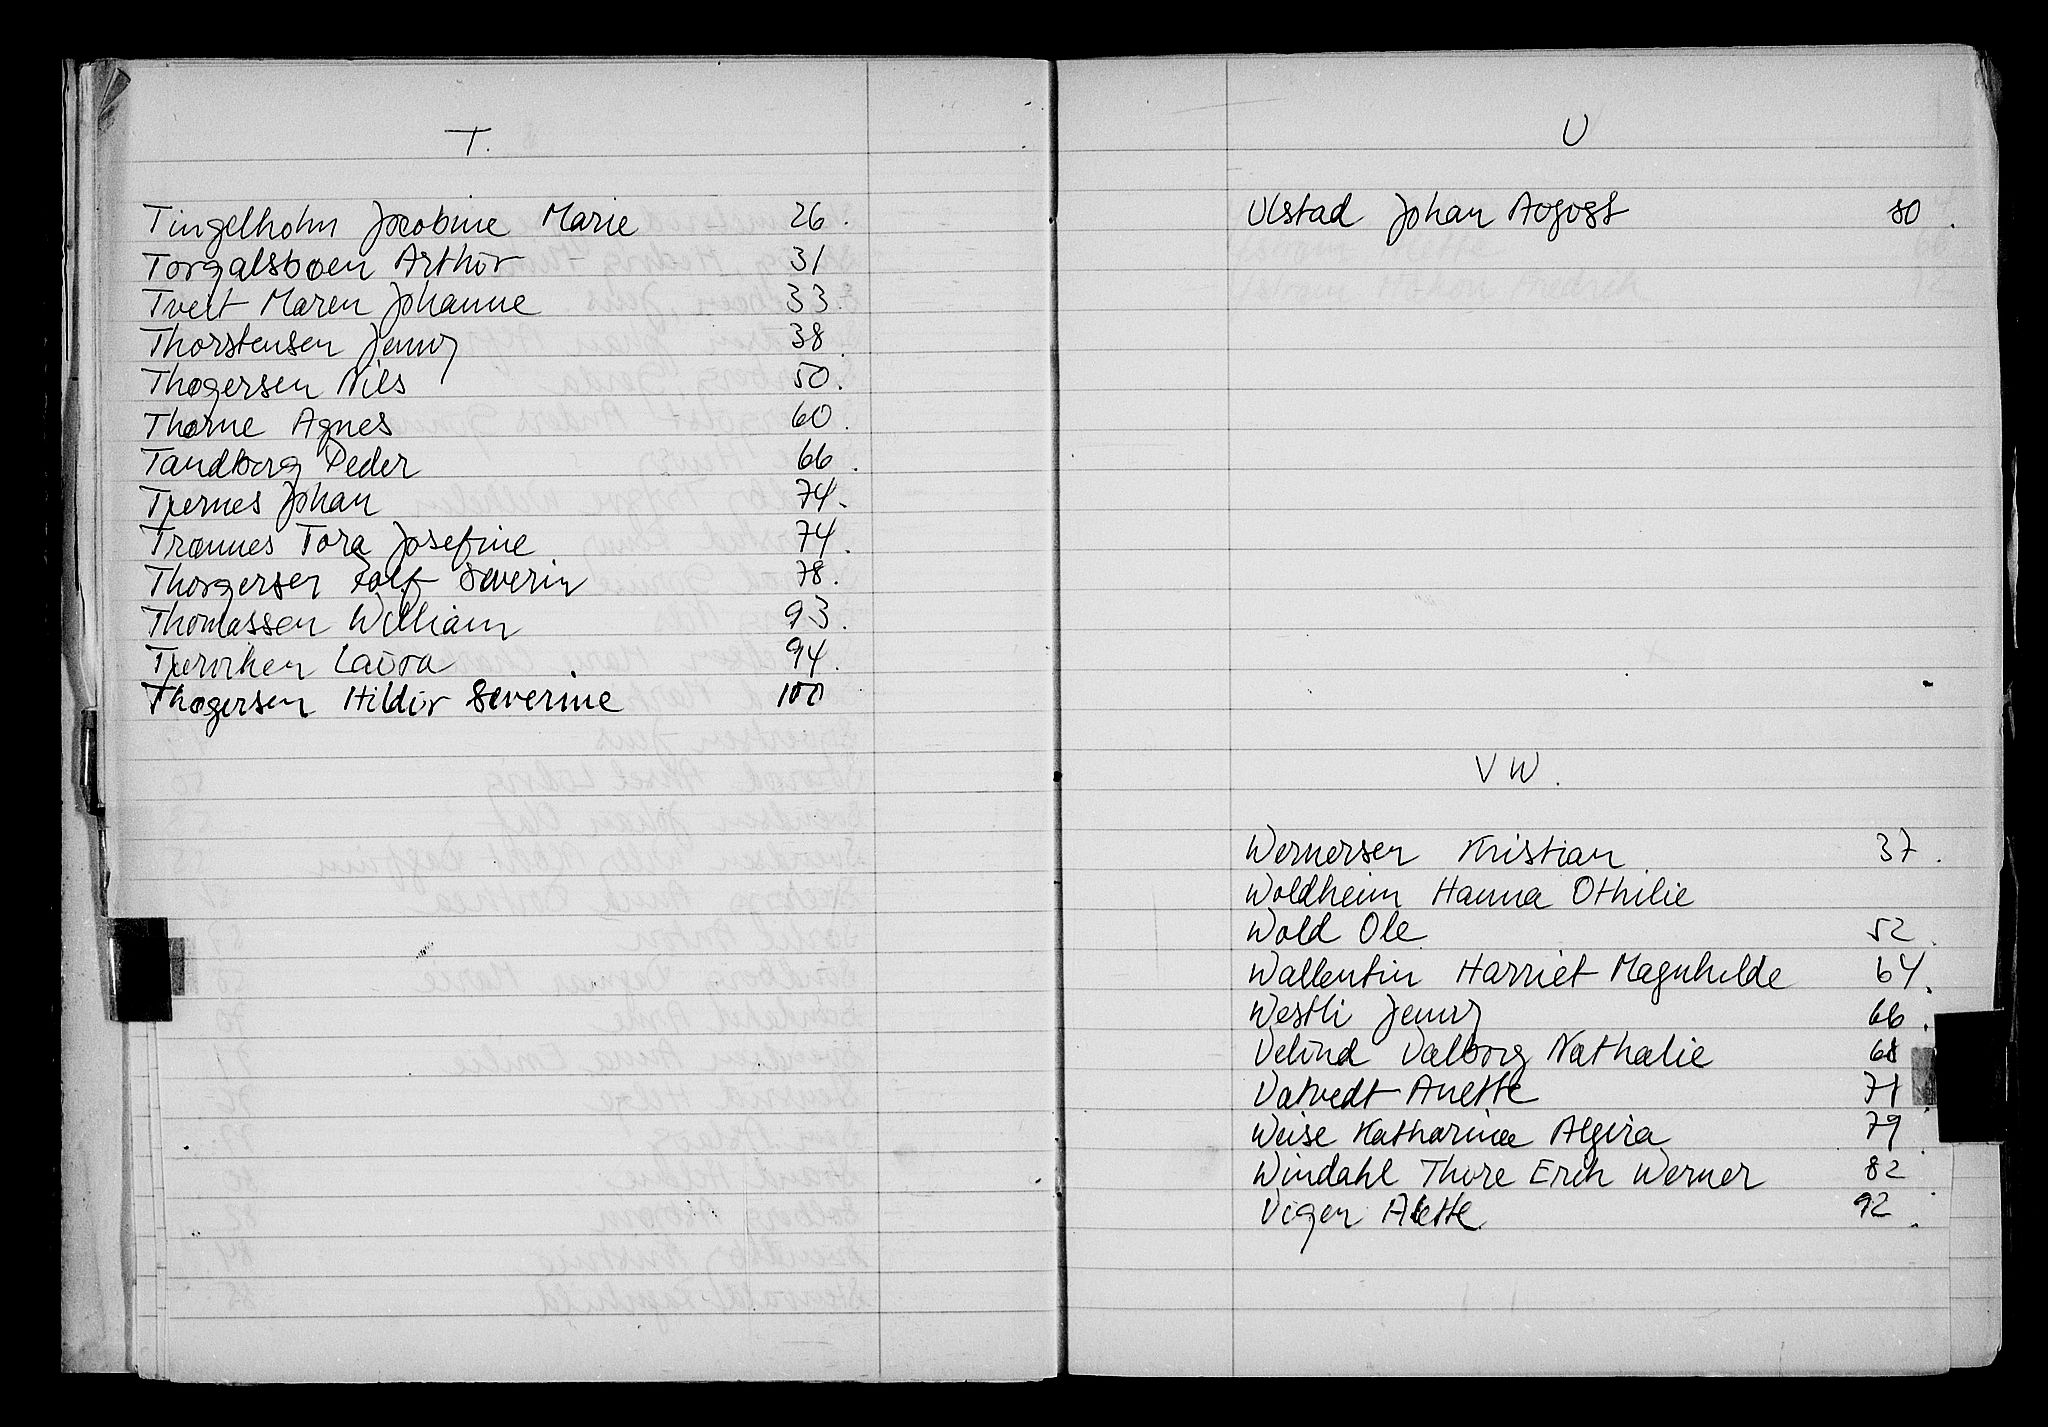 T.
Tingelholm Jacobine Marie 26.
Torgalsbøen Arthur 31
Tveit Maren Johanne 33.
Thorstensen Jenny 38.
Thøgersen Nils 50.
Thorne Agnes 60.
Tandberg Peder 66.
Tjernes Johan 74.
Trønnes Tora Josefine 74.
Thorgersen Rolf Severin 78.
Thomassen William 93.
Laura 94.
Thøgersen Hildur Severine 100
U
Ulstad Johan August 80.
V W.
Wernersen Kristian 37.
Woldheim Hanna Othilie
Wold Ole 52.
Wallentin Harriet Magnhilde 64.
Westli Jenny 66.
Velund Valborg Nathalie 68
Vatvedt Anette 71
Weise Katharina Algira 79
Windahl Thore Erik Werner 82
Viger Alette 92.